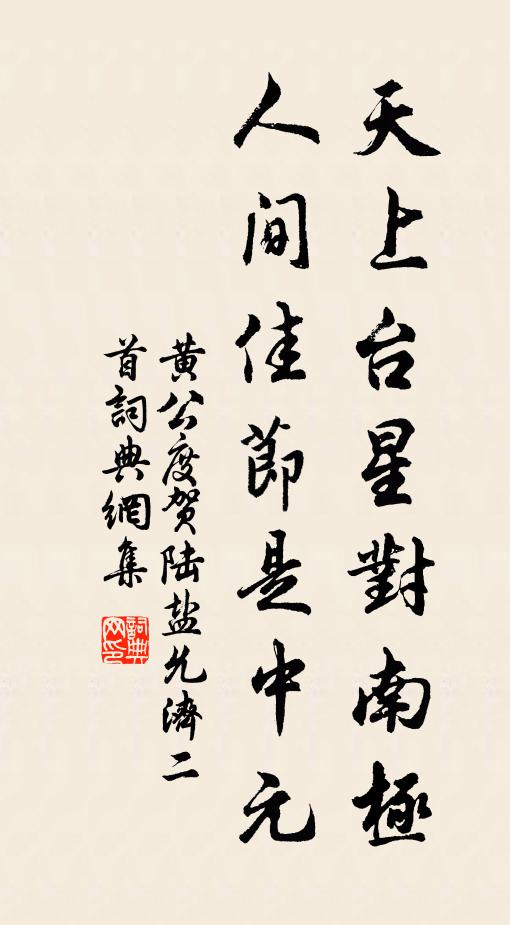 天上台星對南極
人间佳節是中元
黄公度贺陆盐允濟二
首詞典網集
詞典
网印